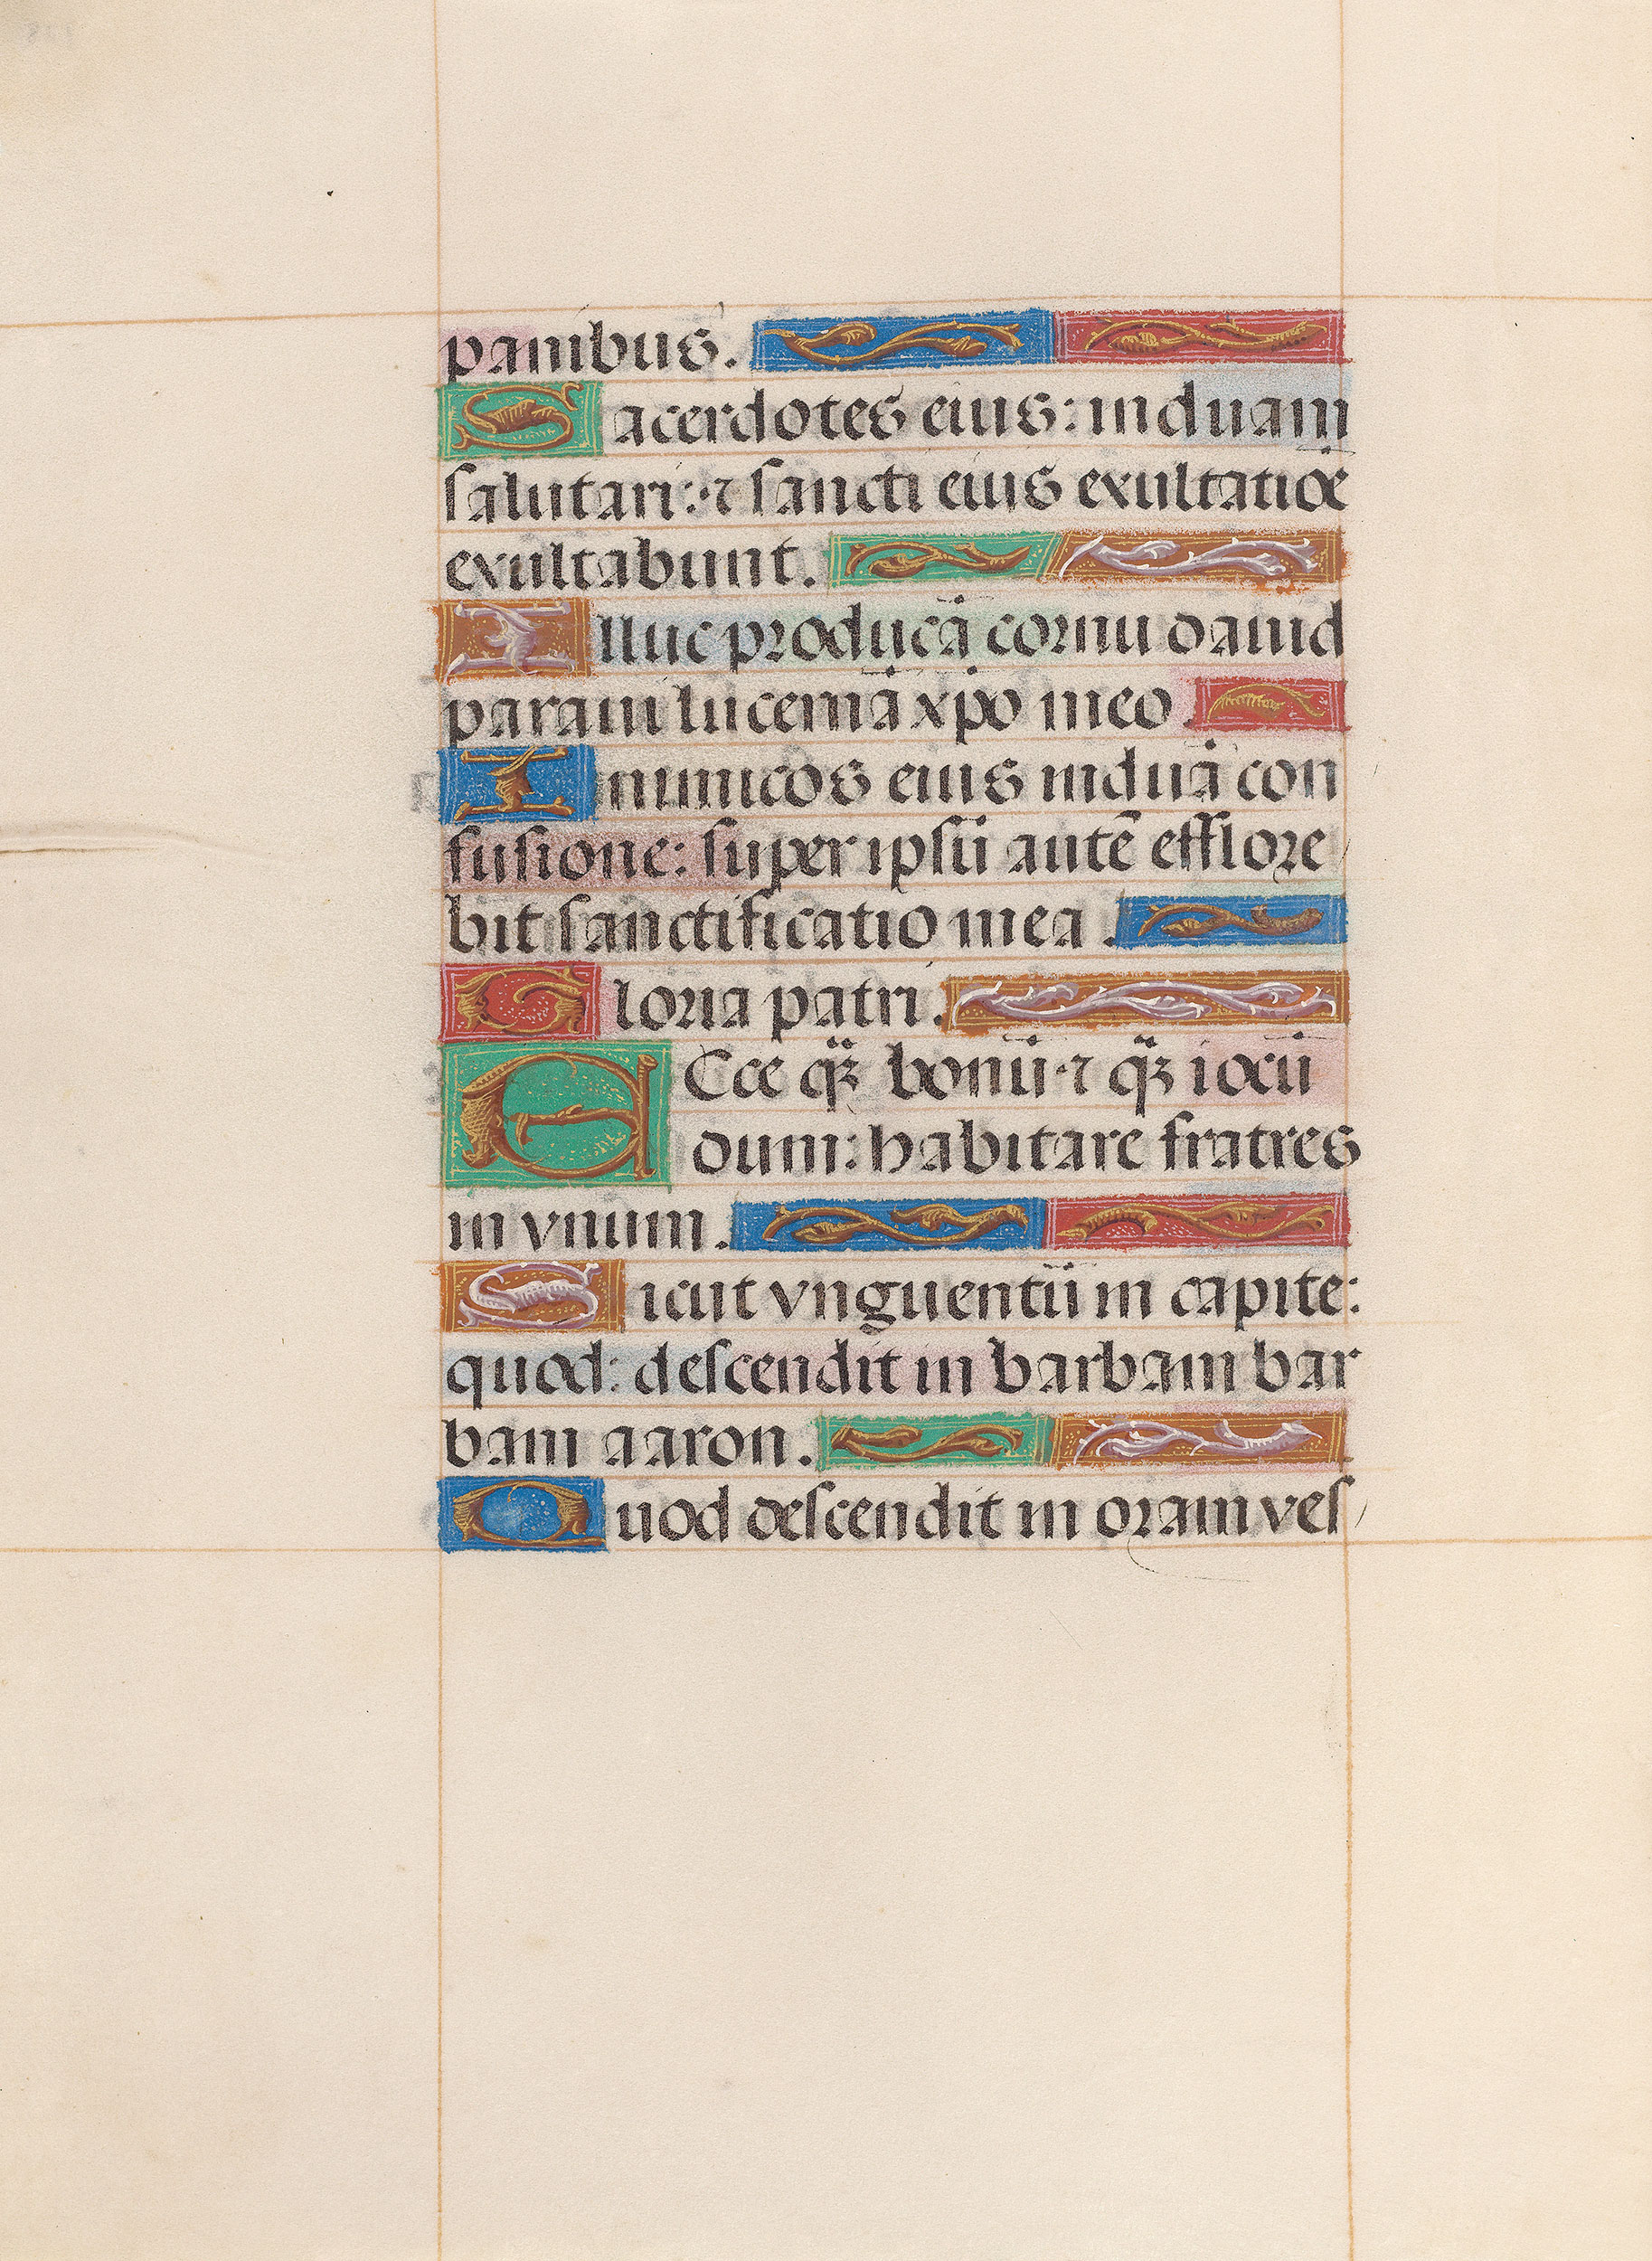 panibus.
Sacerdotes eius: induam
salutari: ⁊ sancti eius exultatiõe
exultabunt.
Illuc producã cornu dauid
paraui lucernã xp̃o meo.
Inimicos eius induã con
fusione: super ipsũ autẽ efflore
bit sanctificatio mea.
Gloria patri.
EEcce q̃ʒ bonũ ⁊ q̃ʒ iocũ
dum: habitare fratres
in vnum.
Sicut vnguentũ in capite:
quod: descendit in barbam bar
bam aaron.
Quod descendit in oram ves